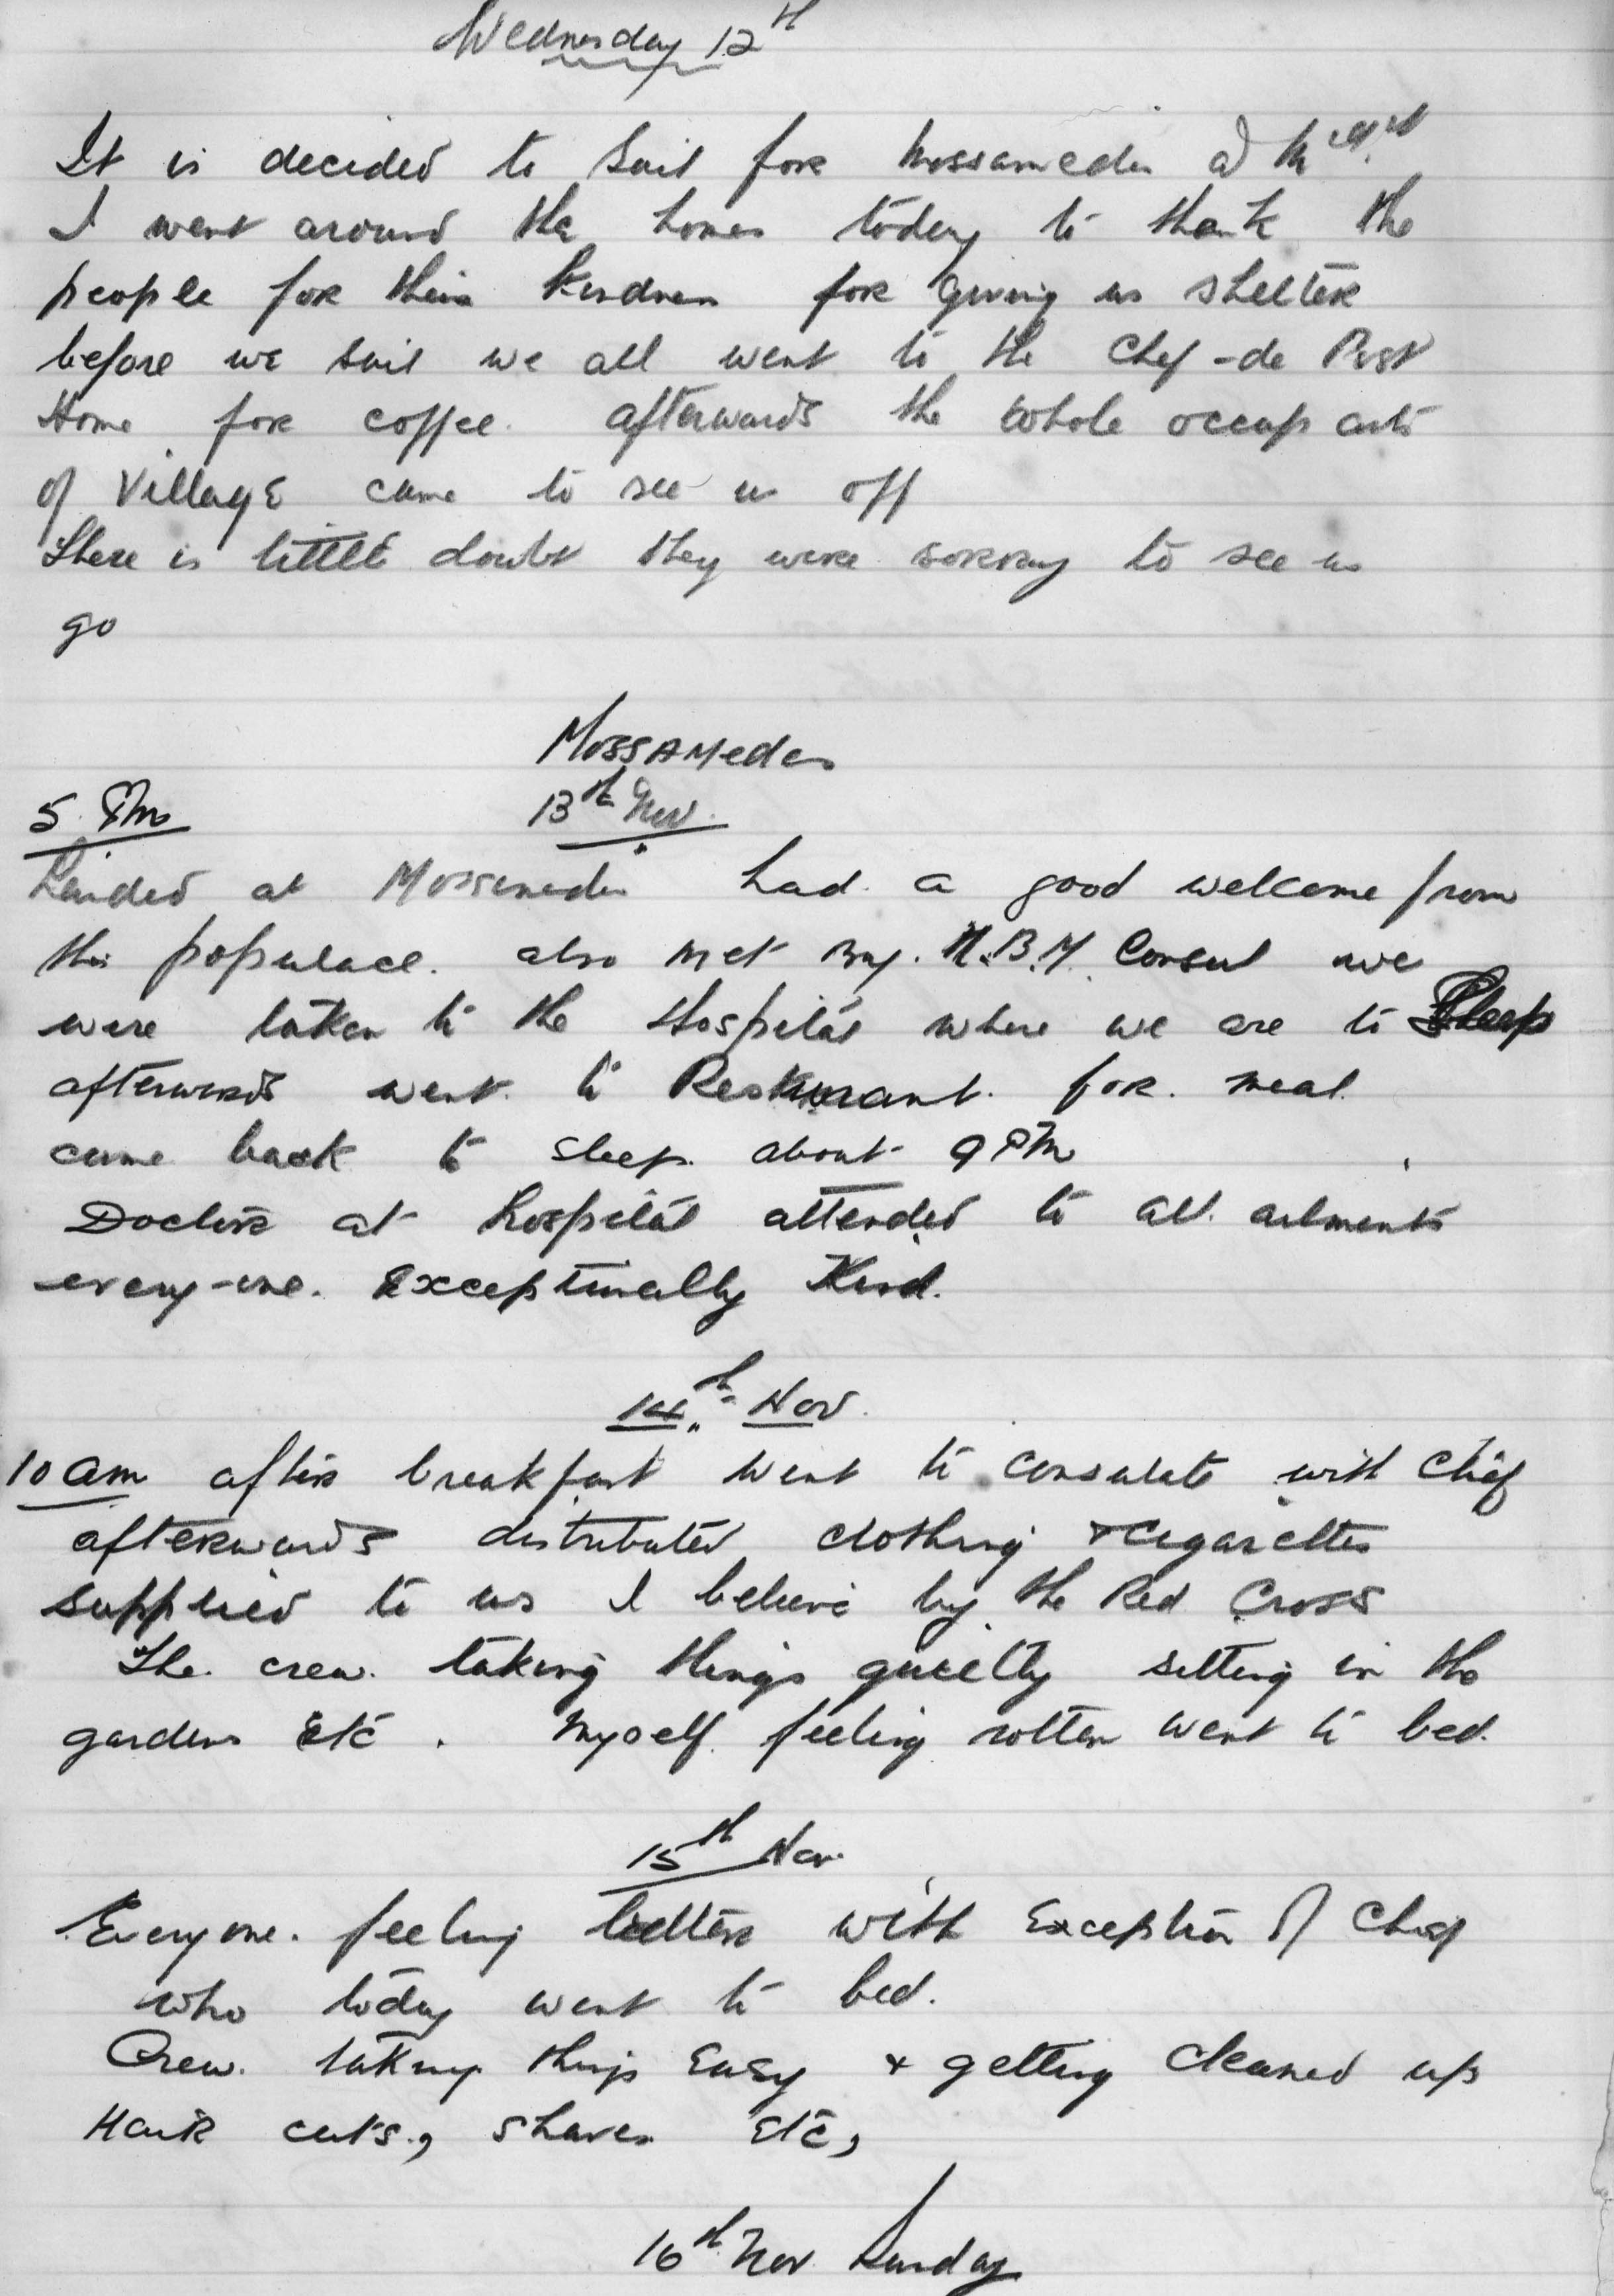 Wednesday 12th
It is decided to sail for Mossamedes
I went around the homes today to thank the
people for their kindness for giving us shelter
before we sail we all went to the Chef-de Post
Home for coffee. afterwards the whole occupants
of Village came to see us off
There is little doubt they were sorry to see us
go
Mossamedes
5. Pm 13th Nov.
Landed at Mossamedes had a good welcome from
the populace. also met by. H.B.M. Consul we
were taken to the Hospital where we are to Sleep
afterwards went to Restaurant. for. meal.
came back to sleep. about 9 PM
Doctor at hospital attended to all. ailments
every-one. Exceptionally Kind.
14th Nov.
10 am after breakfast went to consulate with Chief
afterwards distributed clothing & Cigarettes
supplied to us I believe by the Red Cross
The. crew. taking things quietly sitting in the
gardens Etc. Myself. feeling rotten went to bed.
15th Nov.
Everyone. feeling better with Exception of Chief
who today went to bed.
Crew. taking things Easy & getting cleaned up
Hair cuts., shaves Etc,
16th Nov Sunday